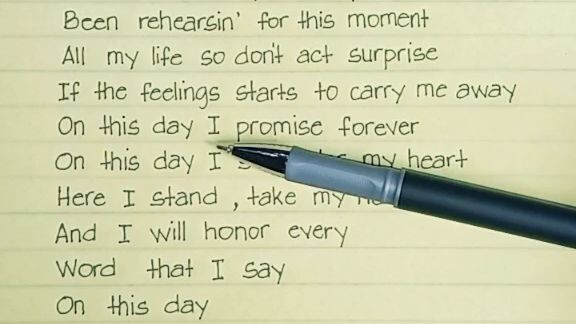 Been rehearsin' for this moment
All my life so don't act surprise
If the feelings starts to carry me away
On this day I promise forever
On this day I my heart
Here I stand , take my
And I will honor every
Word that I say
On this day